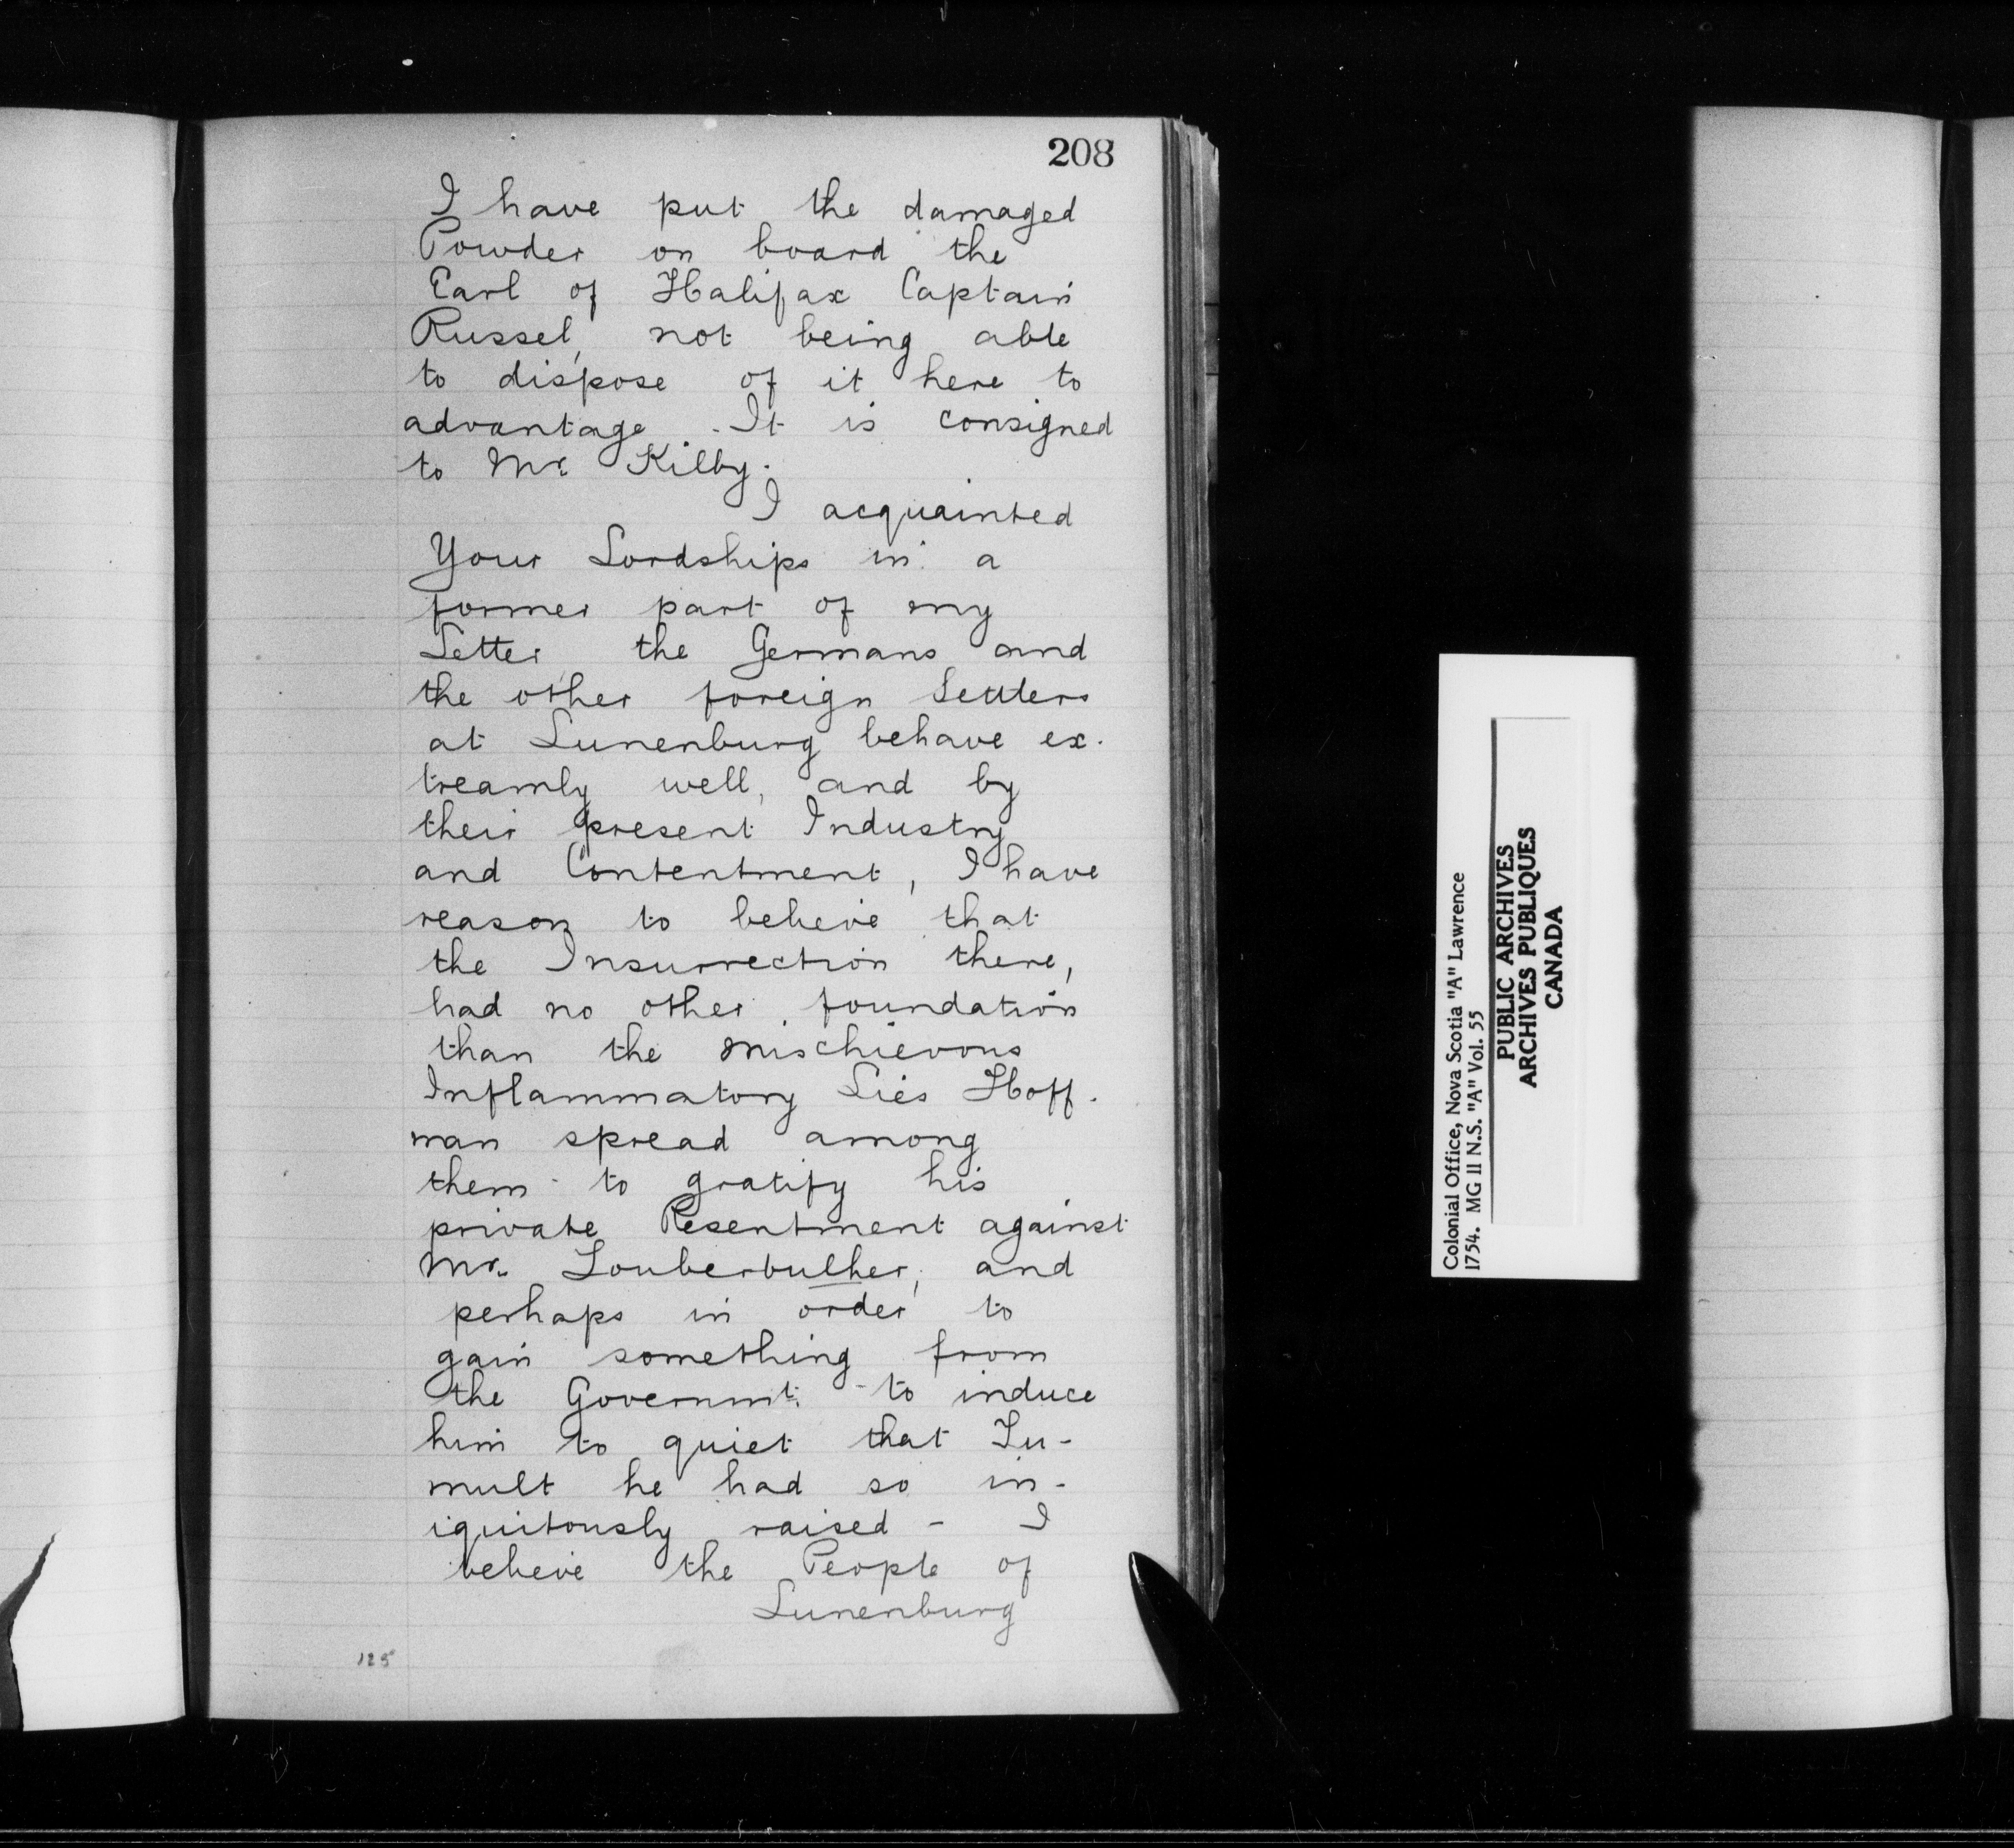 208
I have put the damaged
Powder on board the
Earl of Halifax Captain
Russel, not being able
to dispose of it here to
advantage - It is consigned
to Mr. Kilby.
I acquainted
Your Lordships in a
former part of my
Letter, the Germans and
the other foreign Settlers
at Lunenburg behave ex-
treamly well, and by
their present Industry
and Contentment, I have
reason to believe that
the Insurrection there,
had no other foundation
than the mischievous
Inflammatory Lies Hoff-
man spread among
them to gratify his
private Resentment against
Mr. Zouberbulher, and
perhaps in order to
gain something from
the Governmt. to induce
him to quiet that Tu-
mult he had so in-
iquitously raised - I
believe the People of
Lunenburg
125
Colonial Office, Nova Scotia "A" Lawrence
1754. MG II N.S. "A" Vol. 55
PUBLIC ARCHIVES
ARCHIVES PUBLIQUES
CANADA